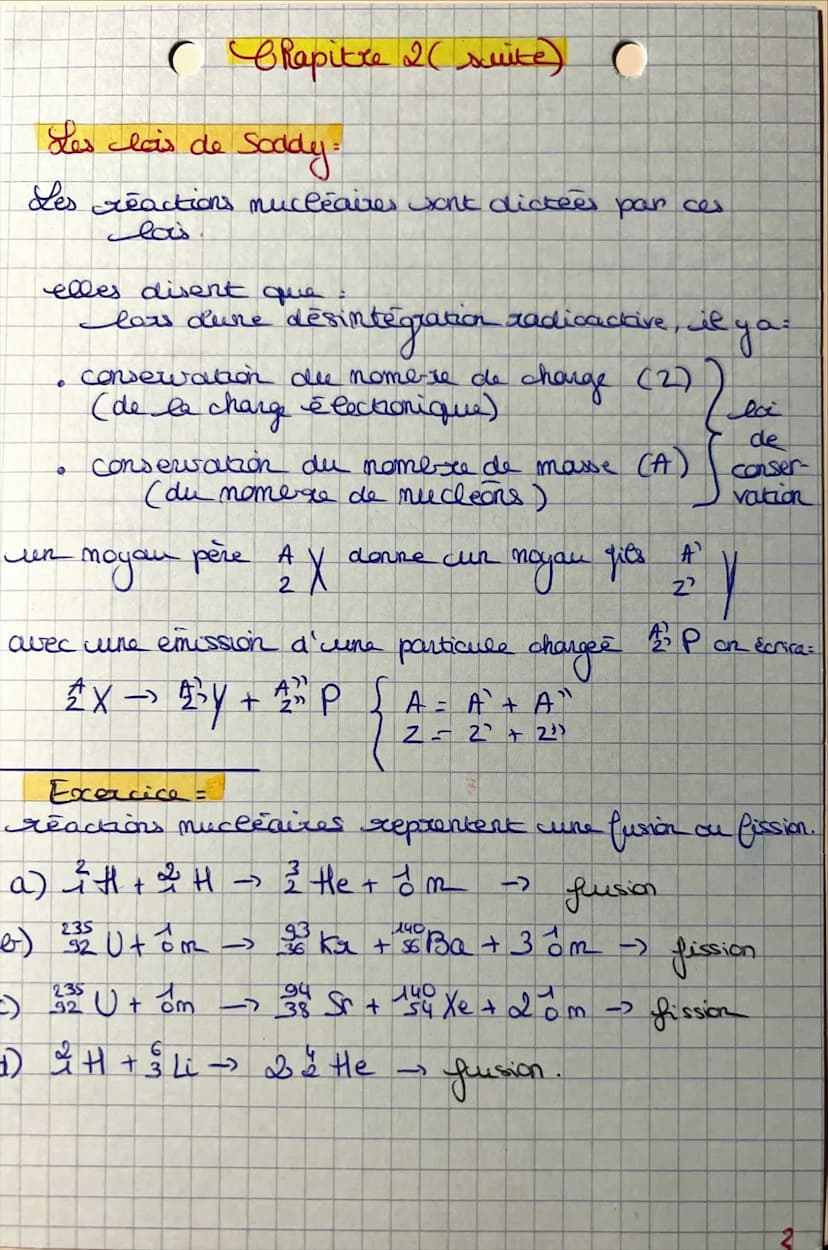 Chapitre 2 (suite)
Les lois de Soddy :
Les réactions nucléaires sont dictées par ces
lois.
elles disent que :
lors d'une désintégration radioactive, il y a :
• conservation du nombre de charge (Z)
(de la charge électronique)
• conservation du nombre de masse (A)
(du nombre de nucléons)
loi
de
conser-
vation
un noyau père ᴬ_Z X donne un noyau fils ᴬ'_Z' Y
avec une émission d'une particule chargée ᴬ''_Z'' P on écrira :
ᴬ_Z X → ᴬ'_Z' Y + ᴬ''_Z'' P { A = A' + A''
Z = Z' + Z''
Exercice :
réactions nucléaires reprentent une fusion ou fission.
a) ²₁H + ²₁H → ³₂He + ¹₀n → fusion
b) ²³⁵₉₂U + ¹₀n → ⁹³₃₆Kr + ¹⁴⁰₅₆Ba + 3 ¹₀n → fission
c) ²³⁵₉₂U + ¹₀n → ⁹⁴₃₈Sr + ¹⁴⁰₅₄Xe + 2 ¹₀n → fission
d) ²₁H + ⁶₃Li → 2 ⁴₂He → fusion.
2